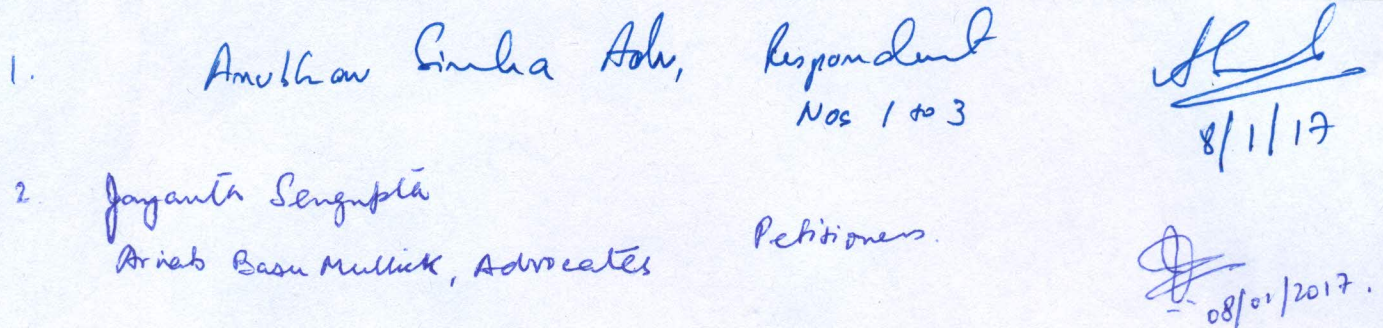 1. Anubhav Sinha Adv, Respondent
Nos 1 to 3
8/1/17
2. Jayanta Sengupta
Arnab Basu Mullick, Advocates Petitioners.
08/01/2017.